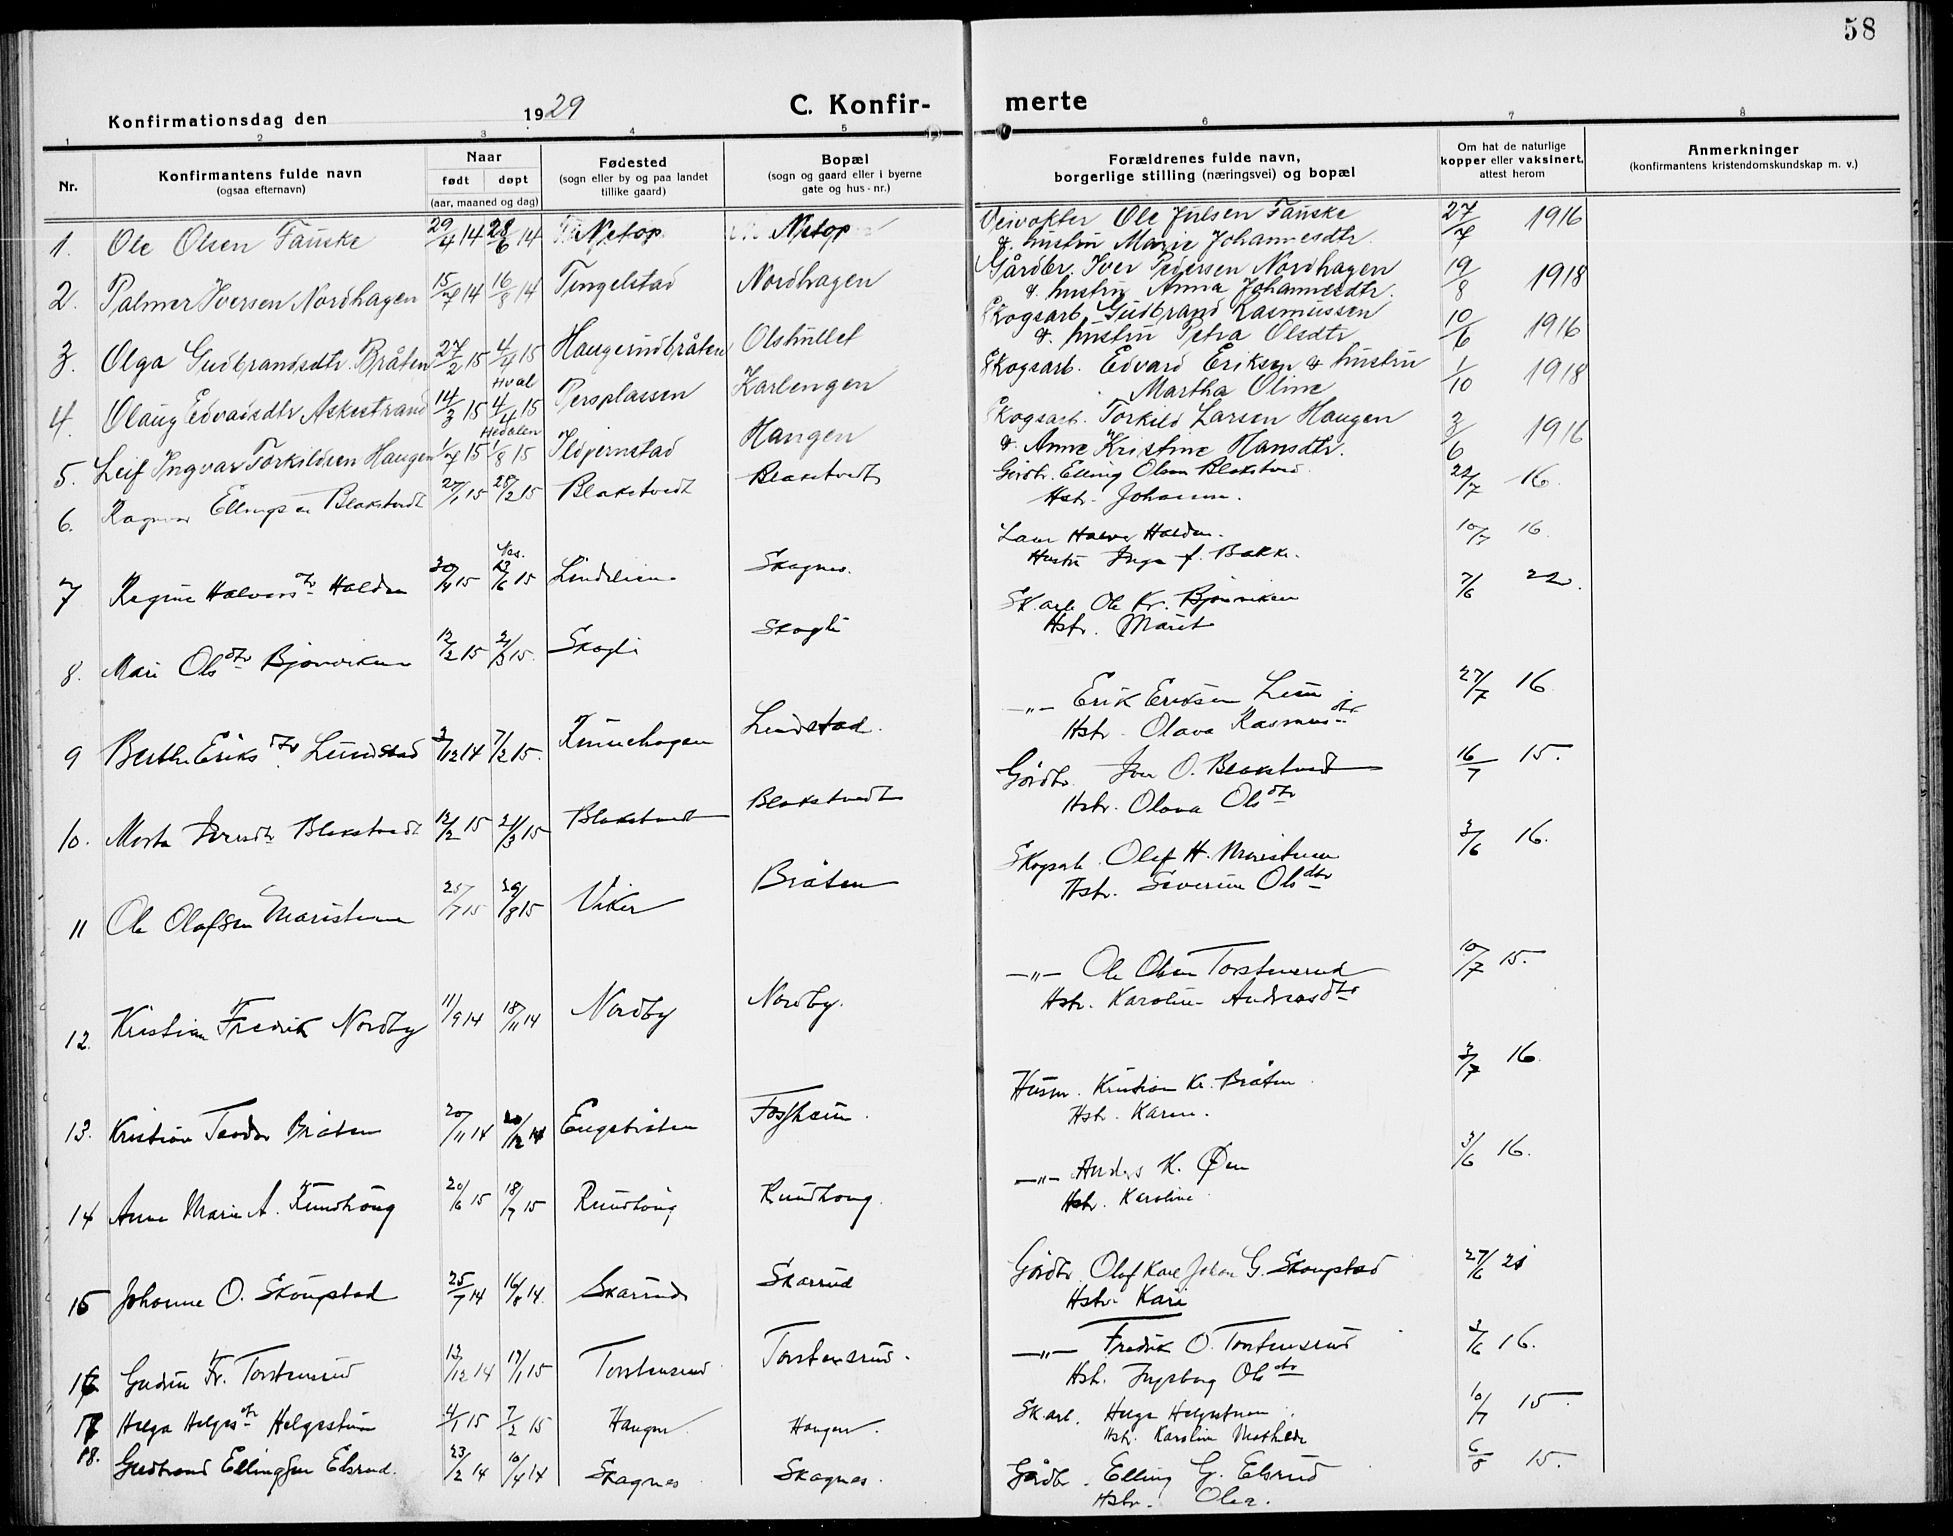 58
Konfirmationsdag den 1929
C. Konfir- merte
1 2 3 4 5 6 7 8
Nr.
Konfirmantens fulde navn
(ogsaa efternavn)
Naar
født døpt
(aar, maaned og dag)
Fødested
(sogn eller by og paa landet
tillike gaard)
Bopæl
(sogn og gaard eller i byerne
gate og hus-nr.)
Forældrenes fulde navn,
borgerlige stilling (næringsvei) og bopæl
Om hat de naturlige
kopper eller vaksinert,
attest herom
Anmerkninger
(konfirmantens kristendomskundskap m. v.)
1. Ole Olsen Fauske 29/4 14 28/6 14 Netop Netop Veivokter Ole Julsen Fauske 27/7 1916
& hustru Marie Johannesdtr.
2. Palmer Iversen Nordhagen 15/7 14 16/8 14 Tingelstad Nordhagen Gårdbr. Iver Pedersen Nordhagen 19/8 1918
& hustru Anna Johannesdtr.
3. Olga Gudbrandsdtr. Bråten 27/2 15 4/4 15 Haugerudbråten Olshullet Skogsarb. Gudbrand Rasmussen 10/6 1916
& hustru Petra Olsdtr
Hval
4. Olaug Edvardsdtr Askestrand 14/3 15 4/4 15 Persplassen Karlengen Skogsarb. Edvard Eriksen & hustru 1/10 1918
Martha Oline
Hedalen
5. Leif Ingvar Torkildsen Haugen 1/7 15 1/8 15 Ildjernstad Haugen Skogsarb. Torkild Larsen Haugen 3/6 1916
& Anne Kristine Hansdtr.
6. Ragnar Ellingsen Blakstvedt 27/1 15 28/2 15 Blakstvedt Blakstvedt Gårdbr. Elling Olsen Blakstved 22/7 16.
Hstr. Johanne.
Nes.
7 Regine Halvorsdtr Halden 30/4 15 13/6 15 Lindelien Skagnes. Halvor Halden. 10/7 16
Hustr Inga f. Bakk.
8. Mari Olsdtr Bjønviken 12/2 15 2/3 15. Skogli Skogli Sk.arb Ole Kr. Bjønviken 7/6 22.
Hstr. Marit
9 Berthe Eriksdtr Lundstad 3/12 14 7/2 15. Lundstad. —"— Erik Eriksen 27/7 16
Hstr. Olava Rasmusdtr
10. Marta Iversdtr Blakstvedt 12/2 15 21/3 15 Blakstvedt Blakstvedt Gårdbr Iver O. Blakstvedt 16/7 15.
Hstr. Olava Olsdtr
11 Ole Olafsen Maristuen 25/7 15 29/8 15 Viker Bråten Skogsarb. Olaf H. Maristuen 3/6 16.
Hstr. Severine Olsdtr
12. Kristian Fredrik Nordby 11/9 14 18/11 14 Nordby Nordby. —"— Ole Olsen Torstensrud 10/7 15.
Hstr. Karoline Andreasdtr
13. Kristian Teodor Bråten 20/11 14 20/12 14 Engebråten Fossheim. Husm. Kristian Kr. Bråten 3/7 16
Hstr. Karen.
14 Anne Marie A. Rundhaug 20/6 15 18/7 15 Rundhaug Rundhaug. —"— Anders K. Øen 3/6 16.
Hstr. Karoline
15 Johanne O. Skougstad 25/7 14 16/8 14. Skarrud Skarrud Gårdbr Olaf Karl Johan G. Skougstad 27/6 21
Hstr. Kari
16 Gudrun Fr. Torstensrud 13/12 14 17/1 15 Torstensrud Torstensrud. —"— Fredrik O. Torstensrud 3/6 16.
Hstr. Ingeborg Olsdtr
17 Helga Helgesdtr Helgestuen 4/1 15 7/2 15 Haugen Haugen. Sk.arb. Helge Helgestuen 10/7 15
Hstr. Karoline Mathilde
18. Gudbrand Ellingsen Elsrud. 23/2 14 10/4 14 Skagnes Skagnes. Gårdbr. Elling G. Elsrud 6/8 15.
Hstr. Olea.